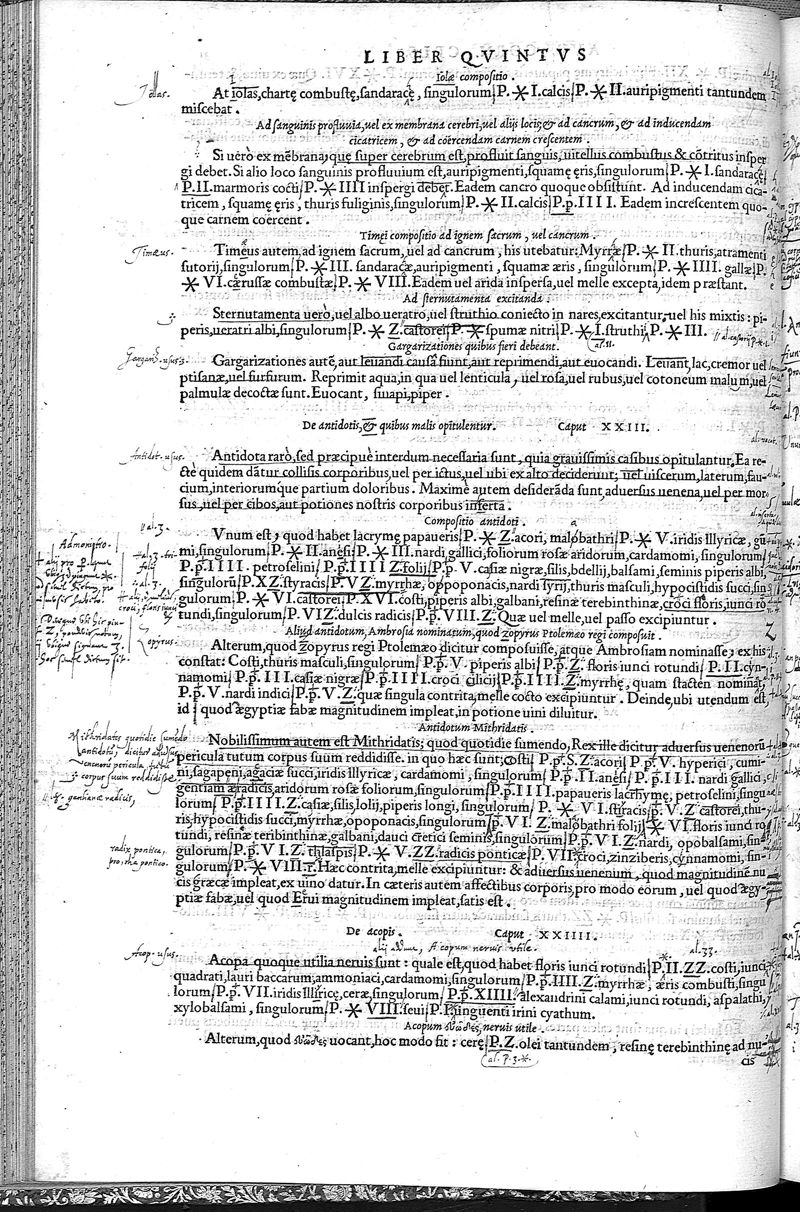 LIBER QVINTVS
Iolæ compositio.
Iollas.
At iolas, chartę combustę, sandaracę, singulorum P. * I. calcis P. * II. auripigmenti tantundem
miscebat.
Ad sanguinis profluuia, uel ex membrana cerebri, uel alijs locis, & ad cancrum, & ad inducendam
cicatricem, & ad coërcendam carnem crescentem.
Si uerò ex mẽbrana, que super cerebrum est, profluit sanguis, uitellus combustus & cõtritus insper
gi debet. Si alio loco sanguinis profluuium est, auripigmenti, squamę ęris, singulorum P. * I. sandaracę
P. II. marmoris cocti P. * IIII inspergi debet. Eadem cancro quoque obsistunt. Ad inducendam cica-
tricem, squamę ęris, thuris fuliginis, singulorum P. * II. calcis P. p. IIII. Eadem increscentem quo-
que carnem coërcent.
Timęi compositio ad ignem sacrum, uel cancrum.
Timæus.
Timęus autem, ad ignem sacrum, uel ad cancrum, his utebatur: Myrræ P. * II. thuris, atramenti
sutorij, singulorum P. * III. sandaracæ, auripigmenti, squamæ æris, singulorum P. * IIII. gallæ P.
* VI. cærussæ combustæ P. * VIII. Eadem uel arida inspersa, uel melle excepta, idem præstant.
Ad sternutamenta excitanda.
Sternutamenta uerò, uel albo ueratro, uel struthio coniecto in nares, excitantur, uel his mixtis: pi-
peris, ueratri albi, singulorum P. * Z. castorei P. * spumæ nitri P. * I. struthij P. * III.
Gargarizationes quibus fieri debeant.
al. II.
Gargariz. usus.
Gargarizationes autẽ, aut leuandi causa fiunt, aut reprimendi, aut euocandi. Leuant, lac, cremor uel
ptisanæ, uel furfurum. Reprimit aqua, in qua uel lenticula, uel rosa, uel rubus, uel cotoneum malum, uel
palmulæ decoctæ sunt. Euocant, sinapi, piper.
De antidotis, & quibus malis opitulentur. Caput XXIII.
Antidot. usus.
Antidota rarò, sed præcipuè interdum necessaria sunt, quia grauissimis casibus opitulantur. Ea re-
ctè quidem dãtur collisis corporibus, uel per ictus, uel ubi ex alto deciderunt; uel uiscerum, laterum, fau-
cium, interiorumque partium doloribus. Maximè autem desiderãda sunt, aduersus uenena, uel per mor
sus, uel per cibos, aut potiones nostris corporibus inserta.
Compositio antidoti.
Vnum est, quod habet lacrymę papaueris P. * Z. acori, malobathri P. * V. iridis Illyricæ, gũ
mi, singulorum P. * II. anesi P. * III. nardi gallici, foliorum rosæ aridorum, cardamomi, singulorum
P. p. IIII. petroselini P. p. IIII Z. folij P. p. V. casiæ nigræ, silis, bdellij, balsami, seminis piperis albi,
singulorũ P. X Z. styracis P. V Z. myrrhæ, opoponacis, nardi syrij, thuris masculi, hypocistidis succi, sin
gulorum P. * VI. castorei P. XVI. costi, piperis albi, galbani, resinæ terebinthinæ, croci floris, iunci ro
tundi, singulorum P. VIZ. dulcis radicis P. p. VIII. Z. Quæ uel melle, uel passo excipiuntur.
Aliud antidotum, Ambrosia nominatum, quod zopyrus Ptolemæo regi composuit.
Zopyrus.
Alterum, quod zopyrus regi Ptolemæo dicitur composuisse, atque Ambrosiam nominasse, ex his
constat: Costi, thuris masculi, singulorum P. p. V. piperis albi P. p. Z. floris iunci rotundi P. II. cyn-
namomi P. p. III. casiæ nigræ P. p. IIII. croci cilicij P. p. IIII. Z. myrrhę, quam stacten nominãt
P. p. V. nardi indici P. p. V. Z. quæ singula contrita, melle cocto excipiuntur. Deinde, ubi utendum est,
id quod ægyptiæ fabæ magnitudinem impleat, in potione uini diluitur.
Antidotum Mithridatis.
Nobilissimum autem est Mithridatis; quod quotidie sumendo, Rex ille dicitur aduersus uenenorũ
pericula tutum corpus suum reddidisse. in quo hæc sunt; costi P. p. S. Z. acori P. p. V. hyperici, cumi-
ni, sagapeni, agaciæ succi, iridis illyricæ, cardamomi, singulorum P. p. II. anesi P. p. III. nardi gallici,
gentiam æradicis, aridorum rosæ foliorum, singulorum P. p. IIII. papaueris lacrhymę, petroselini, singu
lorum P. p. IIII. Z. casiæ, silis, lolij, piperis longi, singulorum P. * VI. stiracis P. p. V. Z. castorei, thu-
ris, hypocistidis succi, myrrhæ, opoponacis, singulorum P. p. VI. Z. malobathri folij * VI. floris iunci ro
tundi, resinæ teribinthinæ, galbani, dauci cretici seminis, singulorum P. p. VI Z. nardi, opobalsami, sin
gulorum P. p. VI Z. thlaspis P. * V. ZZ. radicis ponticæ P. VII. croci, zinziberis, cynnamomi, sin-
gulorum P. * VIII. Hæc contrita, melle excipiuntur: & aduersus uenenum, quod magnitudinẽ nu
cis græcæ impleat, ex uino datur. In cæteris autem affectibus corporis, pro modo eorum, uel quod ægy-
ptiæ fabæ, uel quod Erui magnitudinem impleat, satis est.
radix pontica,
pro, rha pontico.
De acopis. Caput XXIIII.
al. 33.
Acop. usus.
Acopa quoque utilia neruis sunt: quale est, quod habet floris iunci rotundi P. II. ZZ. costi, iunci
quadrati, lauri baccarum, ammoniaci, cardamomi, singulorum P. p. IIII. Z. myrrhæ, æris combusti, singu
lorum P. p. VII. iridis Illirice, ceræ, singulorum P. p. XIIII. alexandrini calami, iunci rotundi, aspalathi,
xylobalsami, singulorum P. * VIII. seui P. I. singuenti irini cyathum.
Acopum εὐῶδες, neruis utile.
Alterum, quod εὐῶδες uocant, hoc modo fit: cerę P. Z. olei tantundem, resinę terebinthinę ad nu-
cis
al. P. 3. *